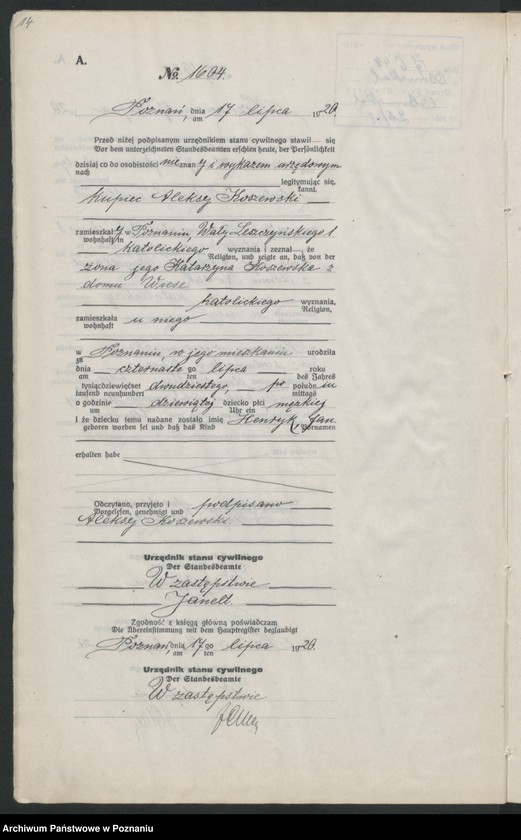 14
A.
No. 1604.
Poznań, dnia 17 lipca 1920.
am
Przed niżej podpisanym urzędnikiem stanu cywilnego stawił — się
Vor dem unterzeichneten Standesbeamten erschien heute, der Persönlichkeit
dzisiaj co do osobistości nieznany i wykazem urzędowym
nach
legitymując się.
kannt.
kupiec Aleksej Koszewski
zamieszkały w Poznaniu, Wały Leszczyńskiego 1
wohnhaft in
katolickiego wyznania i zeznał —, że
Religion, und zeigte an, daß von der
żona jego Katarzyna Koszewska z
domu Wiese
katolickiego wyznania,
Religion,
zamieszkała u niego
wohnhaft
w Poznaniu, w jego mieszkaniu urodziła
zu
dnia czternastego lipca roku
am ten des Jahres
tysiącdziewięćset dwudziestego, po połudn iu
tausend neunhundert mittags
o godzinie dziewiątej dziecko płci męskiej
um Uhr ein
i że dziecku temu nadane zostało imię Henryk, Jan.
geboren worden sei und daß das Kind Vornamen
erhalten habe
Odczytano, przyjęto i podpisano
Vorgelesen, genehmigt und
Aleksej Koszewski.
Urzędnik stanu cywilnego
Der Standesbeamte
W zastępstwie
Janelt
Zgodność z księgą główną poświadczam
Die Übereinstimmung mit dem Hauptregister beglaubigt
Poznań dnia 17 go lipca 1920.
am ten
Urzędnik stanu cywilnego
Der Standesbeamte
W zastępstwie
Archiwum Państwowe w Poznaniu